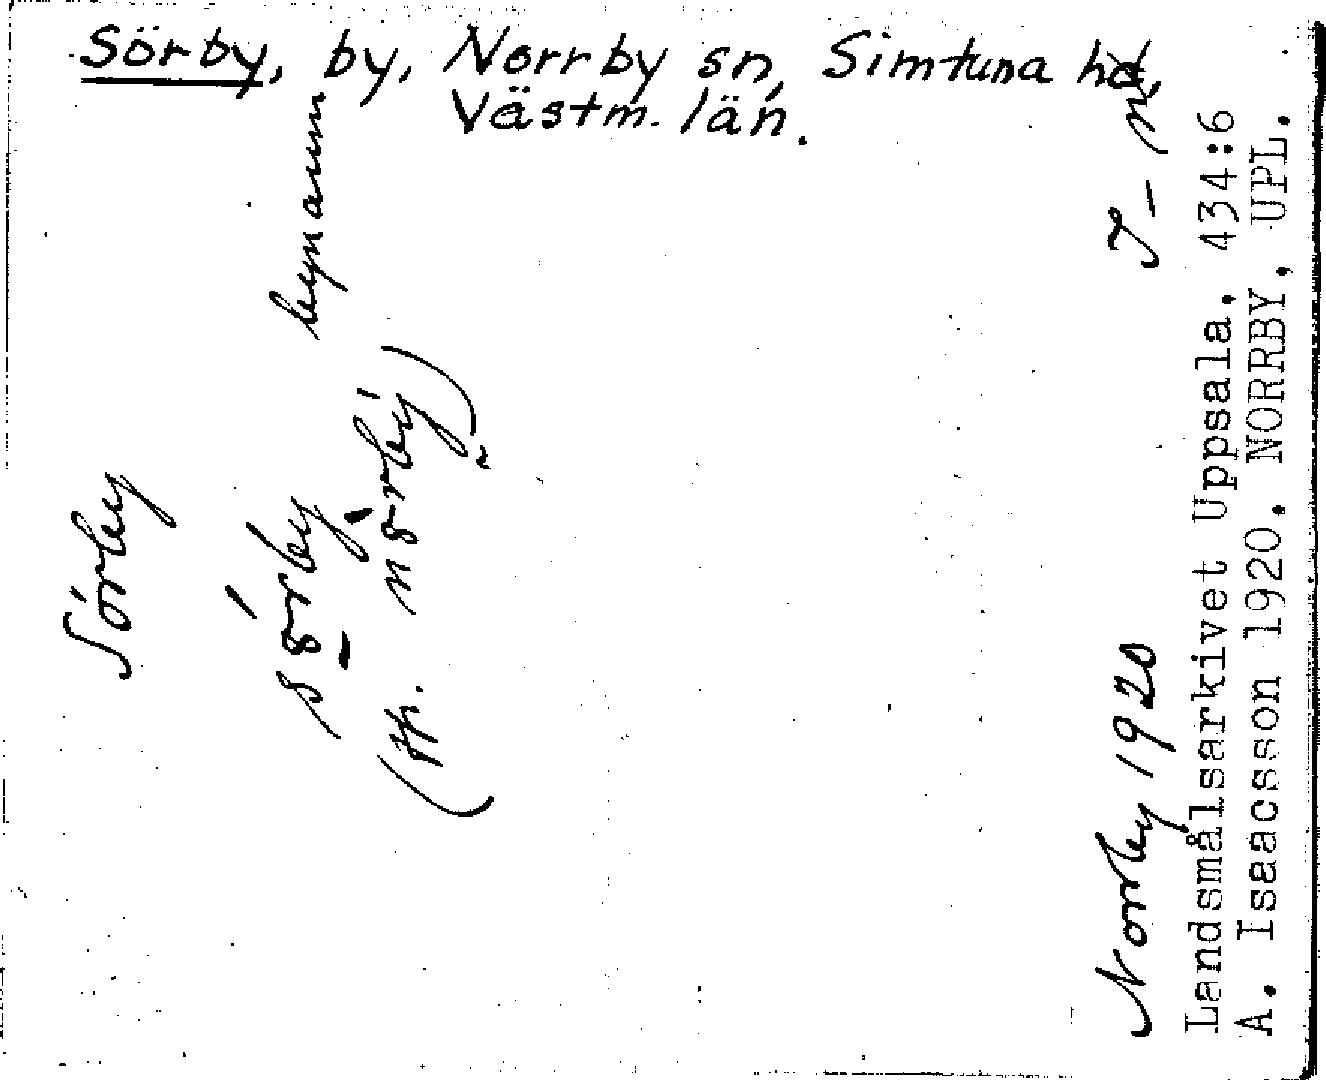 Sörby, by, Norrby sn, Simtuna hd,
Västm. län.
Sörby
bynamn
Norrby 1920
Landsmålsarkivet Uppsala. 434:6
A. Isaacsson 1920. NORRBY, UPL.